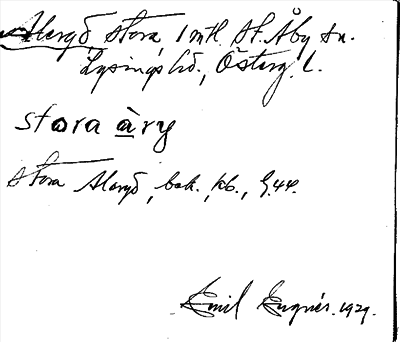 Aleryd, Stora, 1 mtl. St. Åby sn.
Lysings hd., Österg. l.
stora àry
Stora Aleryd, bok., kb., G.44.
Emil Engnér. 1929.